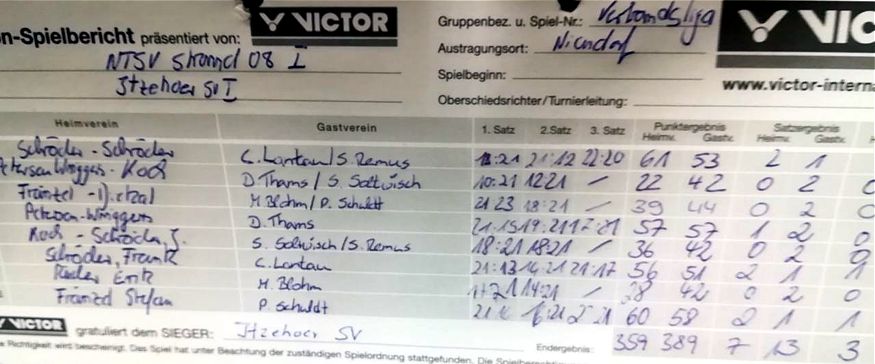 VICTOR
Gruppenbez. u. Spiel-Nr.: Verbandsliga
VIC
n-Spielbericht präsentiert von:
NTSV Strand 08 I
Austragungsort: Niendorf
Itzehoer SV I
Spielbeginn:
www.victor-interna
Oberschiedsrichter/Turnierleitung:
Heimverein Gastverein 1. Satz 2. Satz 3. Satz Punktergebnis Satzergebnis
Heimv. Gastv. Heimv. Gastv.
Schröder - Schröder C. Lantau/S. Remus 18:21 21:12 22:20 61 53 2 1
Petersen Wriggers - Koch D. Thams/S. Saltwisch 10:21 12:21 / 22 42 0 2 0
M. Blohm/P. Schuldt 21 23 18:21 / 39 44 0 2 0
D. Thams 21:15 19:21 17:21 57 57 1 2 0
Koch - Schröder, J. S. Saltwisch/S. Remus 18:21 18:21 / 36 42 0 2 0
Schröder, Frank C. Lantau 21:13 14:21 21:17 56 51 2 1 1
M. Blohm 14:21 / 28 42 0 2 0
Stefan P. Schuldt 60 58 2 1 1
VICTOR gratuliert dem SIEGER: Itzehoer SV
Endergebnis: 359 389 7 13 3
Richtigkeit wird bescheinigt. Das Spiel hat unter Beachtung der zuständigen Spielordnung stattgefunden.